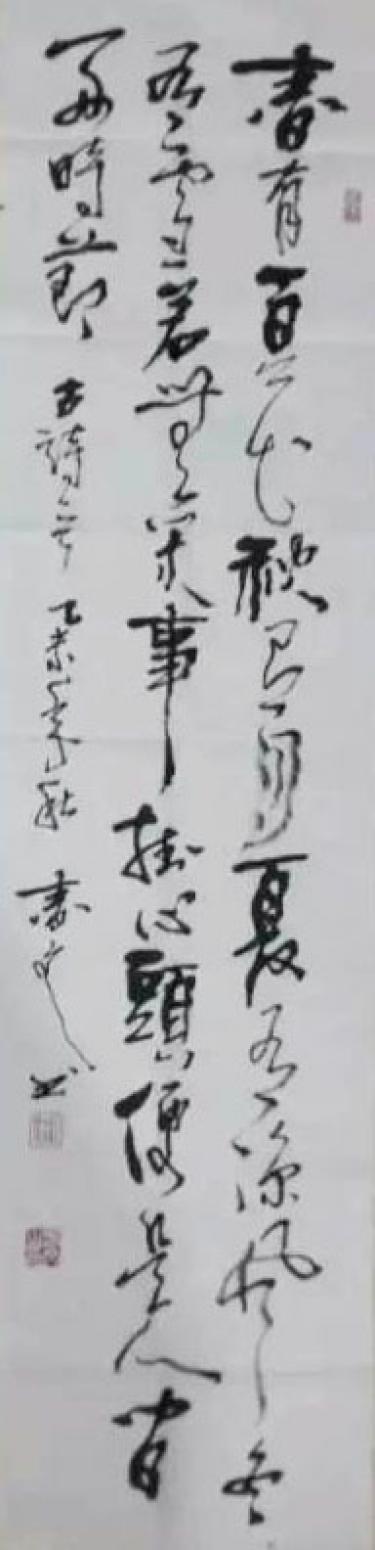 春有百花秋有月夏有涼風冬
有雪若無閑事掛心頭便是人間
好時節 古詩一首 乙未年秋